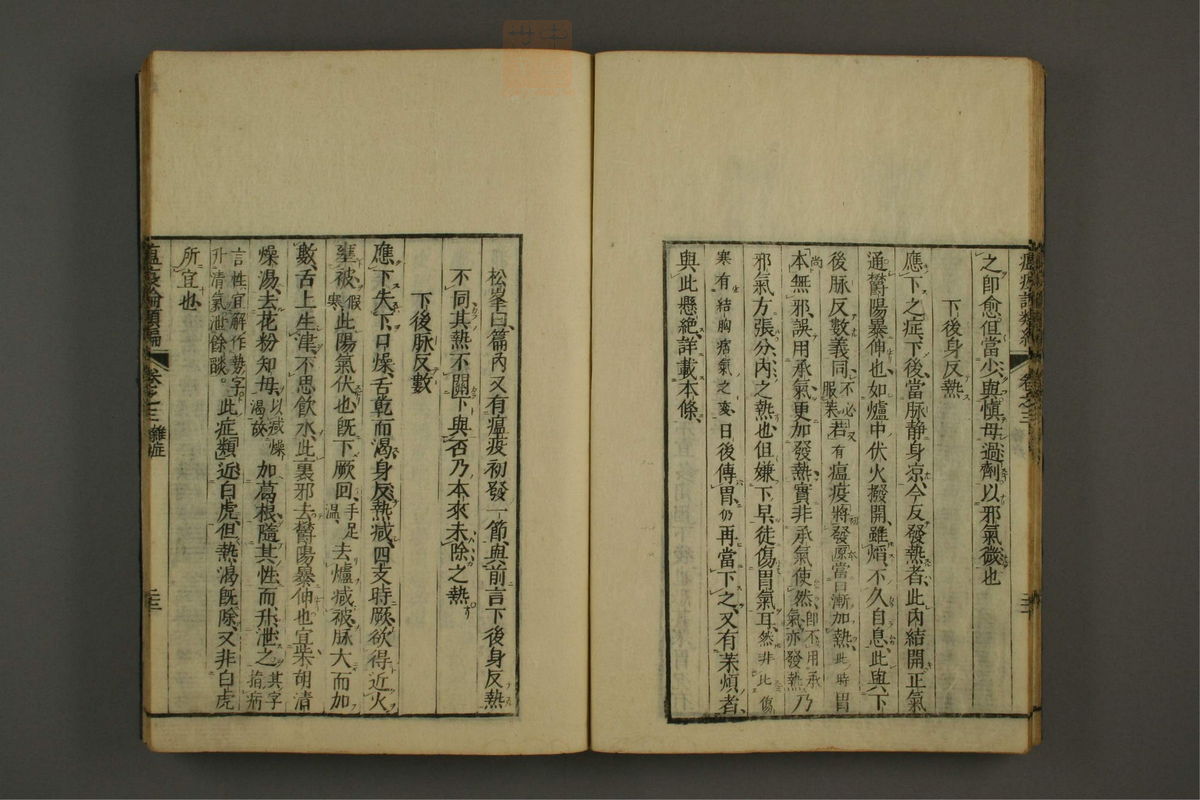 瘟疫論類編 卷之三
之即愈但當少與愼毋過劑以邪氣微也
下後身反熱
應下之症下後當脉静身凉今反發熱者此內結開正氣
通鬱陽暴伸也如爐中伏火撥開雖焰不久自息此與下
後脉反數義同不必又服柴若有瘟疫將發原當日漸加熱此時胃
尚本無邪誤用承氣更加發熱實非承氣使然即不用承氣亦發熱乃
邪氣方張分內之熱也但嫌下早徒傷胃氣耳然非比傷
寒有結胸痞氣之變日後傳胃仍再當下之又有茱煩者
與此懸絶詳載本條
松峯曰篇內又有瘟疫初發一節與前言下後身反熱
不同其熱不關下與否乃本來未除之熱
下後脉反數
應下失下口燥舌乾而渴身反熱減四支時厥欲得近火
壅被假寒此陽氣伏也旣下厥回手足温去爐減被脉大而加
數舌上生津不思飮水此裏邪去鬱陽暴伸也宜柴胡清
燥湯去花粉知母以減燥渴故加葛根隨其性而升泄之其字指病
言性宜解作勢字升清氣泄餘𦦨此症類近白虎但熱渴旣除又非白虎
所宜也
瘟疫論類編 卷之三 雜症 二三